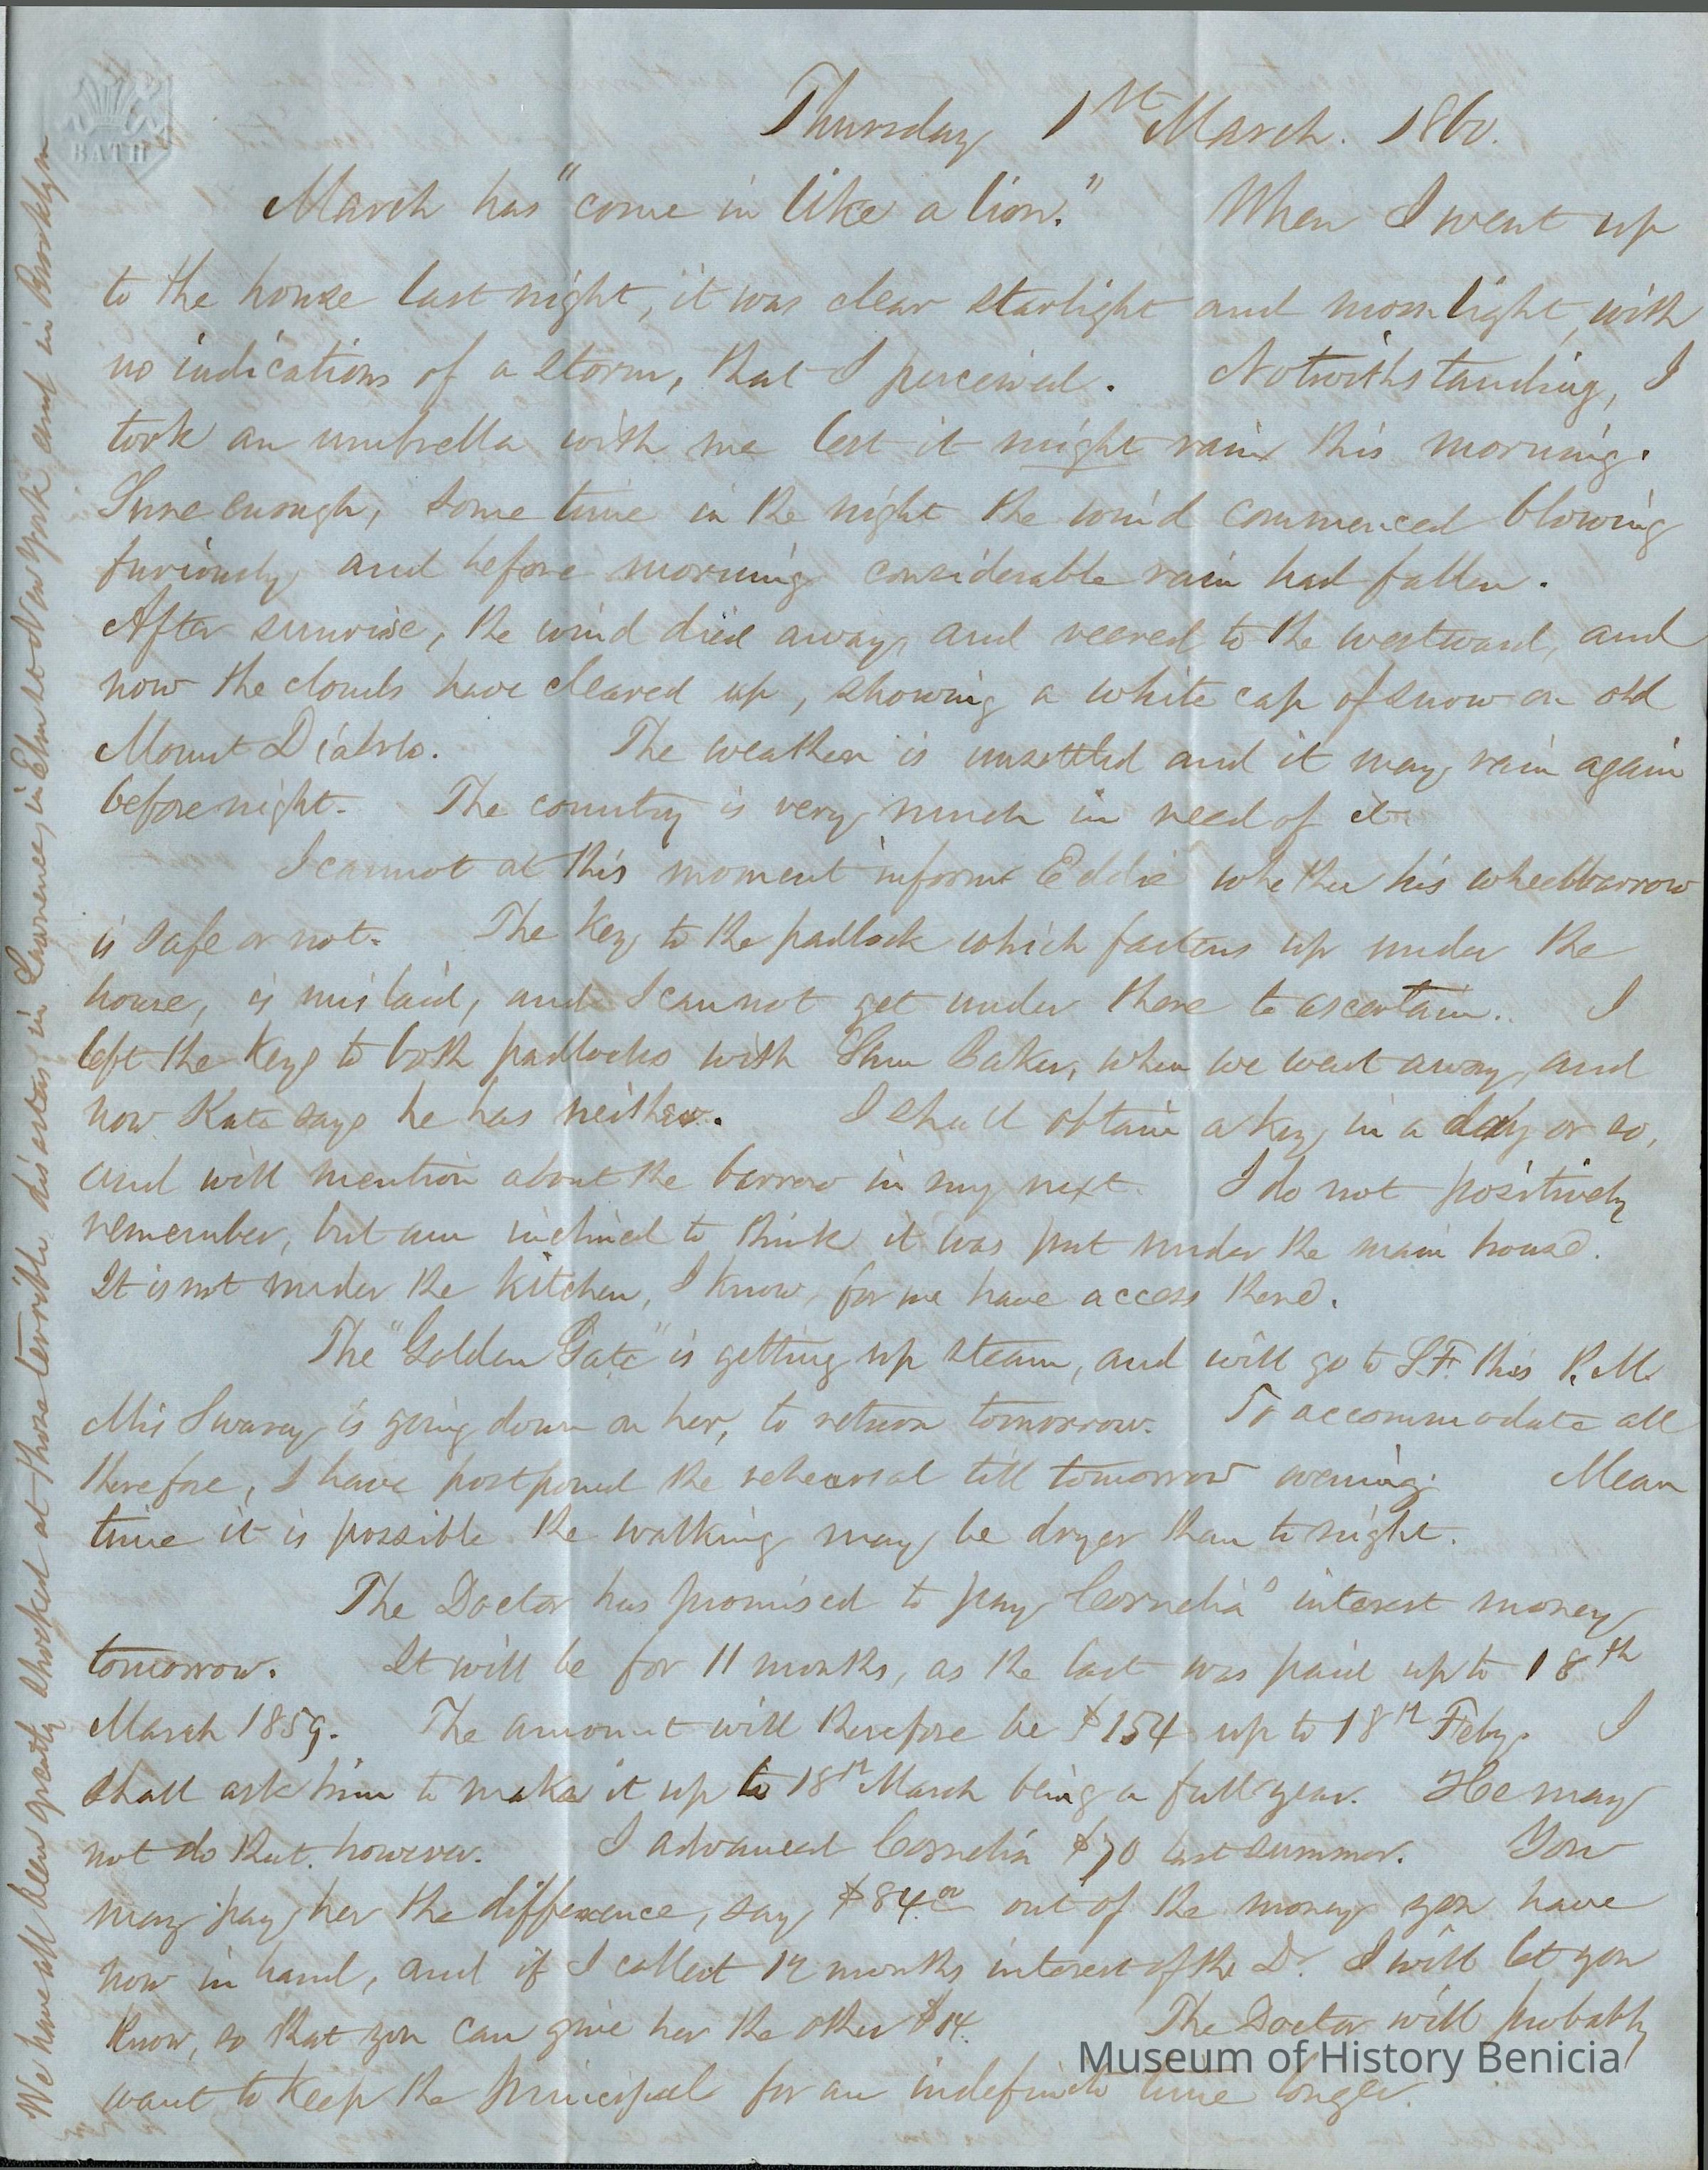 BATH
Thursday 1st March. 1860.
March has "come in like a lion." When I went up
to the house last night, it was clear starlight and moonlight, with
no indications of a storm, that I perceived. Notwithstanding, I
took an umbrella with me lest it might rain this morning.
Sure enough, some time in the night the wind commenced blowing
furiously and before morning considerable rain had fallen.
After sunrise, the wind died away, and veered to the westward, and
now the clouds have cleared up, showing a white cap of snow on old
Mount Diablo. The weather is unsettled and it may rain again
before night. The country is very much in need of it.
I cannot at this moment inform Eddie whether his wheelbarrow
is safe or not. The key to the padlock which fastens up under the
house, is mislaid, and I cannot get under there to ascertain. I
left the keys to both padlocks with Baker, when we went away, and
now Kate says he has neither. I shall obtain a key in a day or so,
and will mention about the barrow in my next. I do not positively
remember, but am inclined to think it was put under the main house.
It is not under the kitchen, I know, for we have access there.
The "Golden Gate" is getting up steam, and will go to S.F. this P.M.
Mis Swasey is going down on her, to return tomorrow. To accommodate all
therefore, I have postponed the rehearsal till tomorrow evening. Mean
time it is possible the walking may be dryer than to night.
The Doctor has promised to pay Cornelia's interest money
tomorrow. It will be for 11 months, as the last was paid up to 18th
March 1859. The amount will therefore be $154 up to 18th Feby. I
shall ask him to make it up to 18th March being a full year. He may
not do that. however. I advanced Cornelia $70 last summer. You
may pay her the difference, say $84.00 out of the money you have
now in hand, and if I collect 12 months interest of the Dr. I will let you
know, so that you can give her the other $14. The Doctor will probably
want to keep the principal for an indefinite time longer.
We have all been greatly shocked at those terrible disasters in Lawrence, in Elm St New York and in Brooklyn
Museum of History Benicia